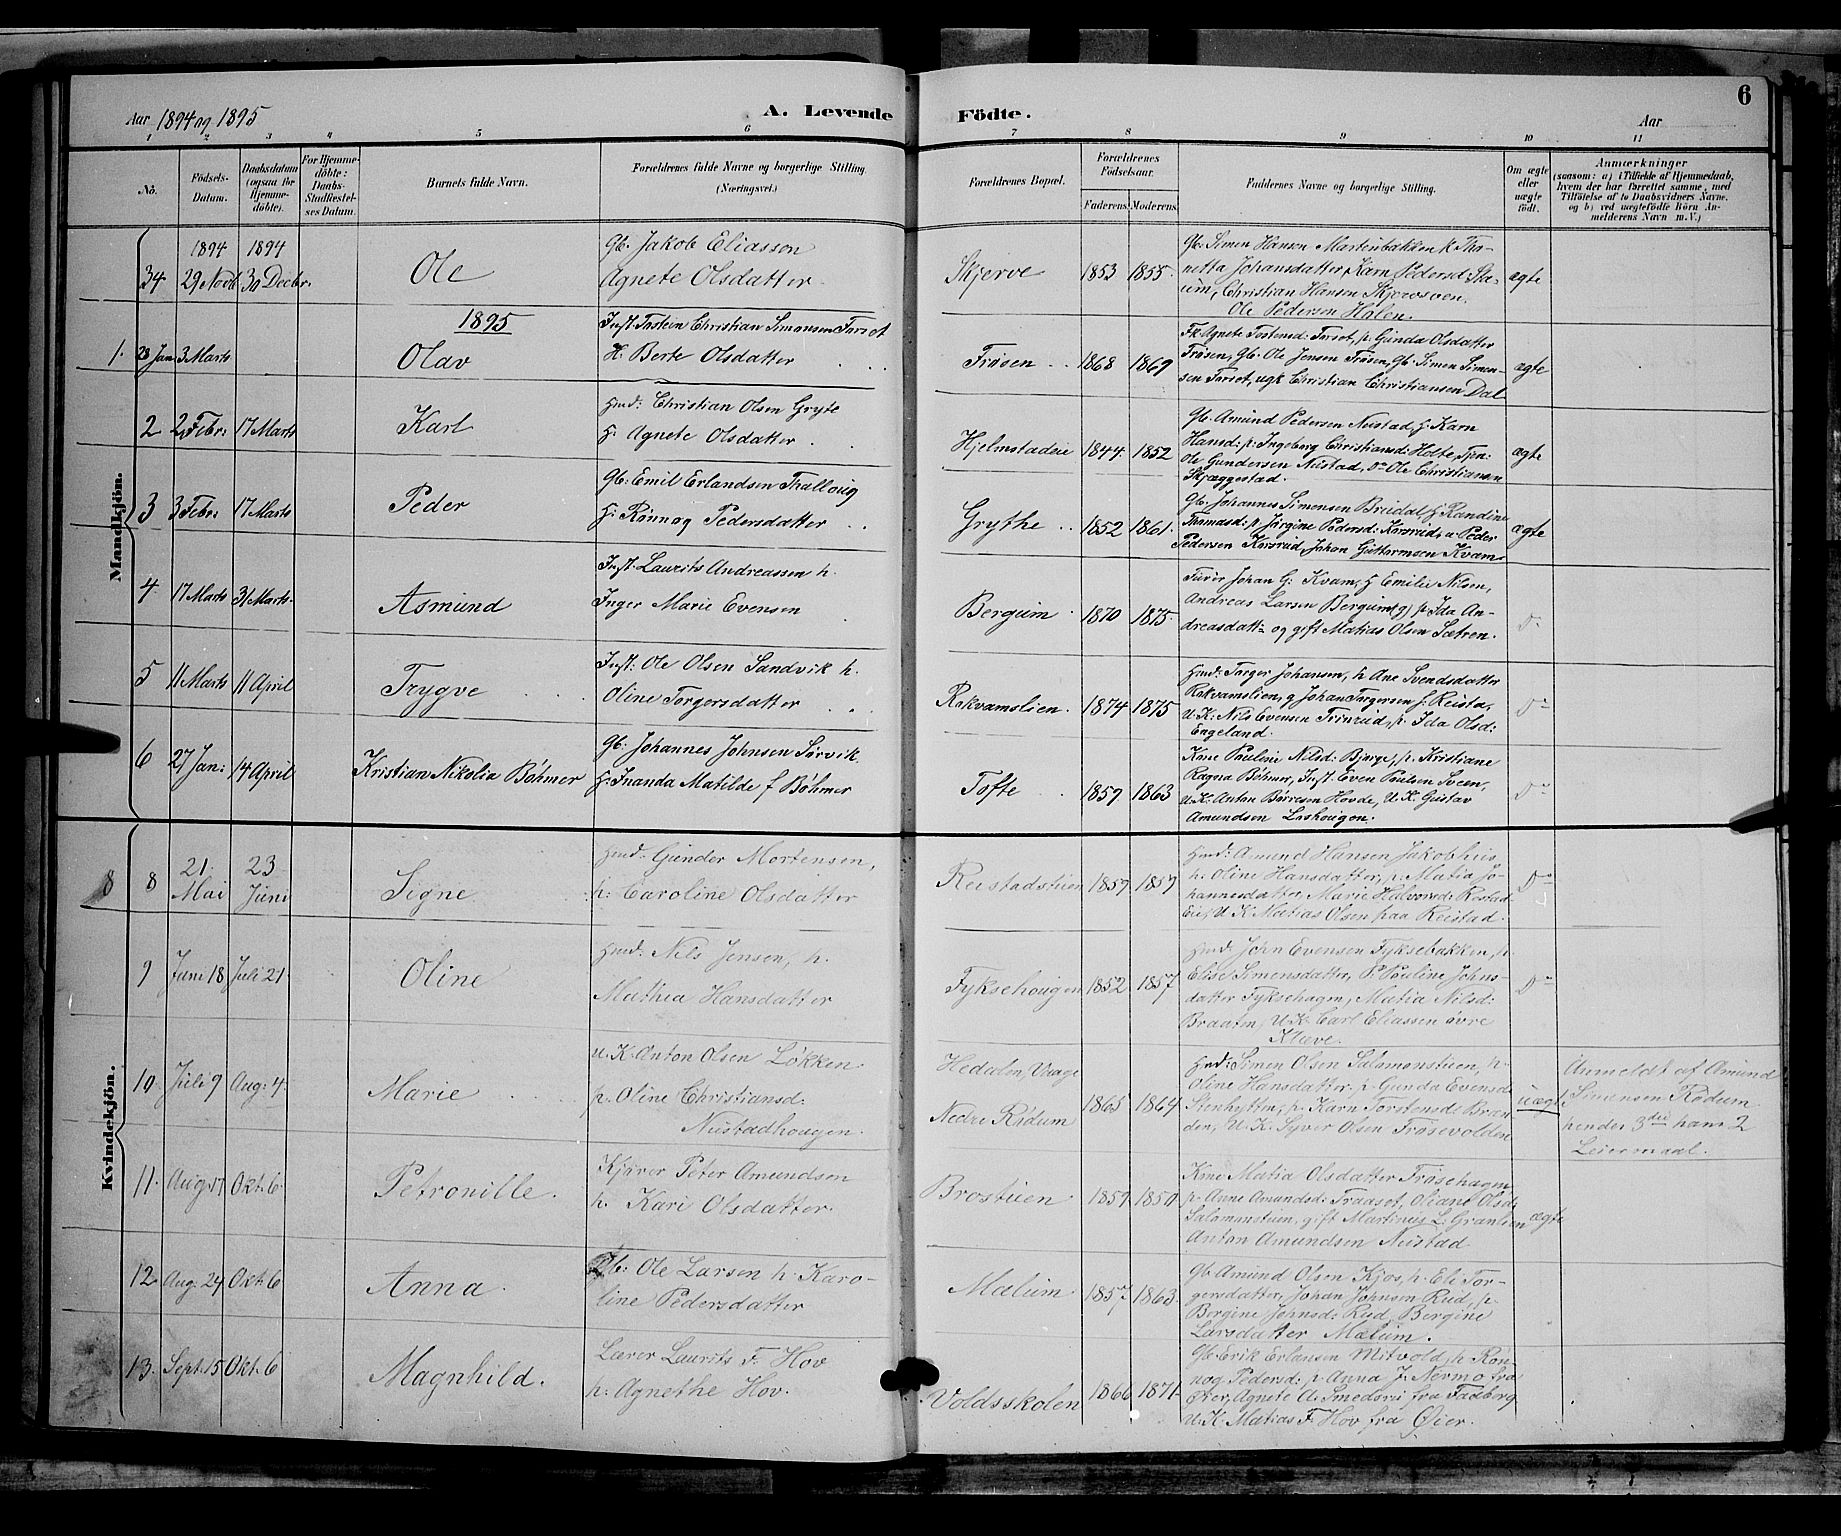 Aar 1894 og 1895
A. Levende Födte.
6
Aar
1 2 3 4 5 6 7 8 9 10 11
No.
Födsels-Datum.
Daabsdatum (ogsaa for Hjemme-döbte).
For Hjemme-döbte: Daabs-Stadfæstel-ses Datum.
Barnets fulde Navn.
Forældrenes fulde Navne og borgerlige Stilling. (Næringsvei.)
Forældrenes Bopæl.
Forældrenes Födselsaar.
Faderens. Moderens.
Faddernes Navne og borgerlige Stilling.
Om ægte eller uægte födt.
Anmærkninger
(saasom: a) i Tilfælde af Hjemmedaab, hvem der har forrettet samme, med Tilföielse af to Daabsvidners Navne. og b) ved uægtefödte Börn An-melderens Navn m. V.)
Mandkjön.
34 1894 29 Novb 1894 30 Decbr.
Ole
Gb. Jakob Eliasson
Agnete Olsdatter
Skjerve 1853 1855
Gb. Simen Hansen Martinbakken k Tho-
netta Johansdatter, Karn Pedersd. Sta-
um, Christian Hansen Skjervsven
Ole Pedersen Holen.
ægte
1895
1. 28 Jan 3 Marts
Olav
Inst. Tostein Christian Simonsen Forset
H. Berte Olsdatter
Frøsen 1868 1869
Fk. Agnete Tostensd. Forset, p. Gunda Olsdatter
Frøsen, Gb. Ole Jensen Frøsen, Gb. Simen Simen-
sen Forset, ugk Christian Christiansen Dal
ægte
2 2 Febr: 17 Marts
Karl
Hmd: Christian Olsen Gryte
H. Agnete Olsdatter
Hjelmstadeie 1844 1852
Gb. Amund Pedersen Neistad, H Karn
Hansd: p. Ingeborg Christiansd: Holte, Tjen:
Ole Gundersen Neistad, Do Ole Christiansen
Skjæggestad.
ægte
3 3 Febr: 17 Marts
Peder
Gb: Emil Erlandsen Tralloug
H. Rönnog Pedersdatter
Grythe 1852 1861
Gb. Johannes Simensen Breidal, H Randine
Thomasd: p. Jørgine Pedersd: Korsrud, u. Peder
Pedersen Korsrud, Johan Guttormsen Kvam
ægte
4. 17 Marts 31 Marts
Asmund
Inst. Laurits Andreassen h.
Inger Marie Evensen
Bergum 1870 1875
Furer Johan G. Kvam, H Emilie Nilsen,
Andreas Larsen Bergum (g) p. Ida An-
dreasdatt: og gift Matias Olsen Sætren.
Do
5 11 Marts 11 April
Trygve
Inst: Ole Olsen Sandvik h.
Oline Torgersdatter
Rokvamslien 1874 1875
Hmd: Torger Johansen, h Ane Svendsdatter
Rokvamslien, g Johan Torgersen f. Reista,
U.K: Nils Evensen Trinrud, p. Ida Olsd:
Engeland.
Do
6 27 Jan: 14 April
Kristian Nikolia Böhmer
Gb: Johannes Johnsen Sørvik
H: Inanda Matilde f Böhmer
Tofte 1859 1863
Kone Pauline Nilsd: Bjørge, p. Kristiane
Ragna Böhmer, Inst. Even Paulsen Sveen,
U.K. Anton Børresen Hovde, U.K. Gustav
Amundsen Loshougen.
Do
Kvindekjön.
8 8 21. Mai 23 Juni
Signe
Hmd. Gunder Mortensen,
h. Caroline Olsdatter
Reistadstuen 1859 1859
Hmd: Amund Hansen Jakobhus,
h. Oline Hansdatter, p. Matia Jo-
hannesdatter Marie Halvorsd: Rostad
Eie, U K Matias Olsen paa Reistad.
Do
9 Juni 18 Juli 21
Oline
Hmd. Nils Jensen, h.
Mathea Hansdatter
Fyksehougen 1852 1857
Hmd. John Evensen Fyksebakken, h.
Elise Simensdatter, P. Pauline Johns-
datter Fyksehagen, Matia Nilsd:
Braaten, U.K. Carl Eliassen övre
Kleve.
Do
10. Juli 9 Aug: 4.
Marie
u. K. Anton Olsen Løkken
p. Oline Christiansd:
Neistadhougen.
Hedalen, Vaage
Nedre Rödum 1865 1864
Hmd: Simen Olsen Salomonstuen, h.
Oline Hansdatter. p. Gunda Evensd
Stenhytten, p. Karn Torstensd: Bran
den, U. K. Syver Olsen Frösevolden
uægte
Anmeldt af Amund
Simensen Rödum
hendes 3die hans 2
Leiermaal.
11. Aug: 17 Okt. 6.
Petronille.
Kjører Peter Amundsen
h. Kari Olsdatter.
Brostuen 1859 1850
Kone Matia Olsdatter Frösehagen
p. Anne Amundsd: Traaset, Oliane Olsd:
Salomonstuen, gift Martinus L: Granlien
Anton Amundsen Neistad
ægte
12. Aug: 24 Okt: 6
Anna.
Gb: Ole Larsen h. Karo-
line Pedersdatter
Mælum 1857 1863
Gb. Amund Olsen Kjos, h. Eli Tor-
gersdatter, Johan Johnsen Rud, p.
Bergine Johnsd: Rud, Bergine
Larsdatter Mælum.
13. Sept. 15 Okt. 6
Magnhild.
Lærer Laurits F. Hov
h. Agnethe Hov.
Voldsskolen 1866 1871
Gb. Erik Erlansen Mitvold, h. Ron-
nog Pedersd: p. Anna J. Nermo fra
Øier, Agnete A: Smedsrø fra Faaberg
U. K. Matias F. Hov fra Øier.